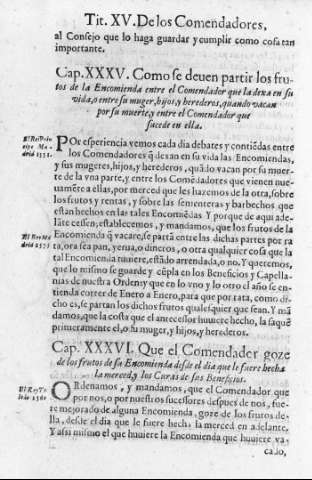 Tit. XV. De los Comendadores,
al Consejo que lo haga guardar y cumplir como cosa tan
importante.
Cap. XXXV. Como se deuen partir los fru-
tos de la Encomienda entre el Comendador que la dexa en su
vida, o entre su muger, hijos, y herederos, quando vacan
por su muerte, y entre el Comendador que
sucede en ella.
POr esperiencia vemos cada dia debates y contiẽdas entre
los Comendadores q̃ dexan en su vida las Encomiendas,
y sus mugeres, hijos, y herederos, quãdo vacan por su muer-
te de la vna parte, y entre los Comẽdadores que vienen nue-
uamẽte a ellas, por merced que les hazemos de la otra, sobre
los frutos y rentas, y sobre las sementeras y barbechos que
estan hechos en las tales Encomiẽdas. Y porque de aqui ade-
lãte cessen, establecemos, y mandamos, que los frutos de la
Encomienda q̃ vacare, se partã entre las dichas partes por ra
ta, ora sea pan, yerua, o dineros, o otra qualquier cosa que la
tal Encomienda tuuiere, estãdo arrendada, o no. Y queremos,
que lo mismo se guarde y cũpla en los Beneficios y Capella-
nias de nuestra Orden: y que en lo vno y lo otro el año se en-
tienda correr de Enero a Enero, para que por rata, como di-
cho es, se partan los dichos frutos qualesquier que sean. Y mã
damos, que la costa que el antecessor huuiere hecho, la saquẽ
primeramente el, o su muger, y hijos, y herederos.
Cap. XXXVI. Que el Comendador goze
de los frutos de su Encomienda desde el dia que le fuere hecha
la merced, y los Curas de sus Beneficios.
ORdenamos, y mandamos, que el Comendador que
por nos, o por nuestros sucessores despues de nos, fue-
re mejorado de alguna Encomienda, goze de los frutos de-
lla, desde el dia que le fuere hecha la merced en adelante.
Y assi mismo el que huuiere la Encomienda que huuiere va-
cado,